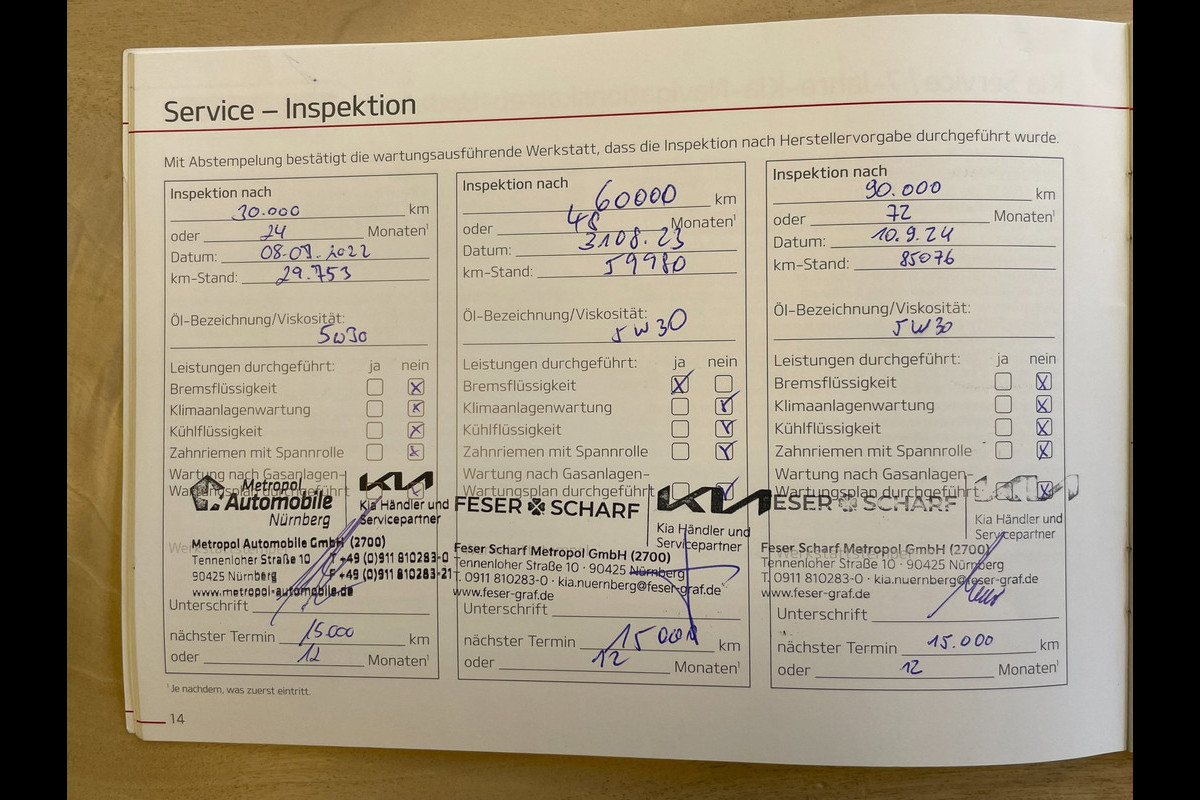 Service – Inspektion
Mit Abstempelung bestätigt die wartungsausführende Werkstatt, dass die Inspektion nach Herstellervorgabe durchgeführt wurde.
Inspektion nach
30.000 km
oder 24 Monaten¹
Datum: 08.09.2022
km-Stand: 29.753
Öl-Bezeichnung/Viskosität:
5W30
Leistungen durchgeführt: ja nein
Bremsflüssigkeit
Klimaanlagenwartung
Kühlflüssigkeit
Zahnriemen mit Spannrolle
Wartung nach Gasanlagen-
Wartungsplan durchgeführt
Metropol
Automobile
Nürnberg
KIA
Kia Händler und
Servicepartner
Werkstattstempel
Metropol Automobile GmbH (2700)
Tennenloher Straße 10 T +49 (0)911 810283-0
90425 Nürnberg F +49 (0)911 810283-21
www.metropol-automobile.de
Unterschrift
nächster Termin 15.000 km
oder 12 Monaten¹
Inspektion nach
60000 km
oder 48 Monaten¹
Datum: 3108.23
km-Stand: 59980
Öl-Bezeichnung/Viskosität:
5W30
Leistungen durchgeführt: ja nein
Bremsflüssigkeit
Klimaanlagenwartung
Kühlflüssigkeit
Zahnriemen mit Spannrolle
Wartung nach Gasanlagen-
Wartungsplan durchgeführt
FESER SCHARF
KIA
Kia Händler und
Servicepartner
Feser Scharf Metropol GmbH (2700)
Tennenloher Straße 10 · 90425 Nürnberg
T. 0911 810283-0 · kia.nuernberg@feser-graf.de
www.feser-graf.de
Unterschrift
nächster Termin 15000 km
oder 12 Monaten¹
Inspektion nach
90.000 km
oder 72 Monaten¹
Datum: 10.9.24
km-Stand: 85076
Öl-Bezeichnung/Viskosität:
5W30
Leistungen durchgeführt: ja nein
Bremsflüssigkeit
Klimaanlagenwartung
Kühlflüssigkeit
Zahnriemen mit Spannrolle
Wartung nach Gasanlagen-
Wartungsplan durchgeführt
FESER SCHARF
KIA
Kia Händler und
Servicepartner
Werkstattstempel
Feser Scharf Metropol GmbH (2700)
Tennenloher Straße 10 · 90425 Nürnberg
T. 0911 810283-0 · kia.nuernberg@feser-graf.de
www.feser-graf.de
Unterschrift
nächster Termin 15.000 km
oder 12 Monaten¹
¹ Je nachdem, was zuerst eintritt.
14